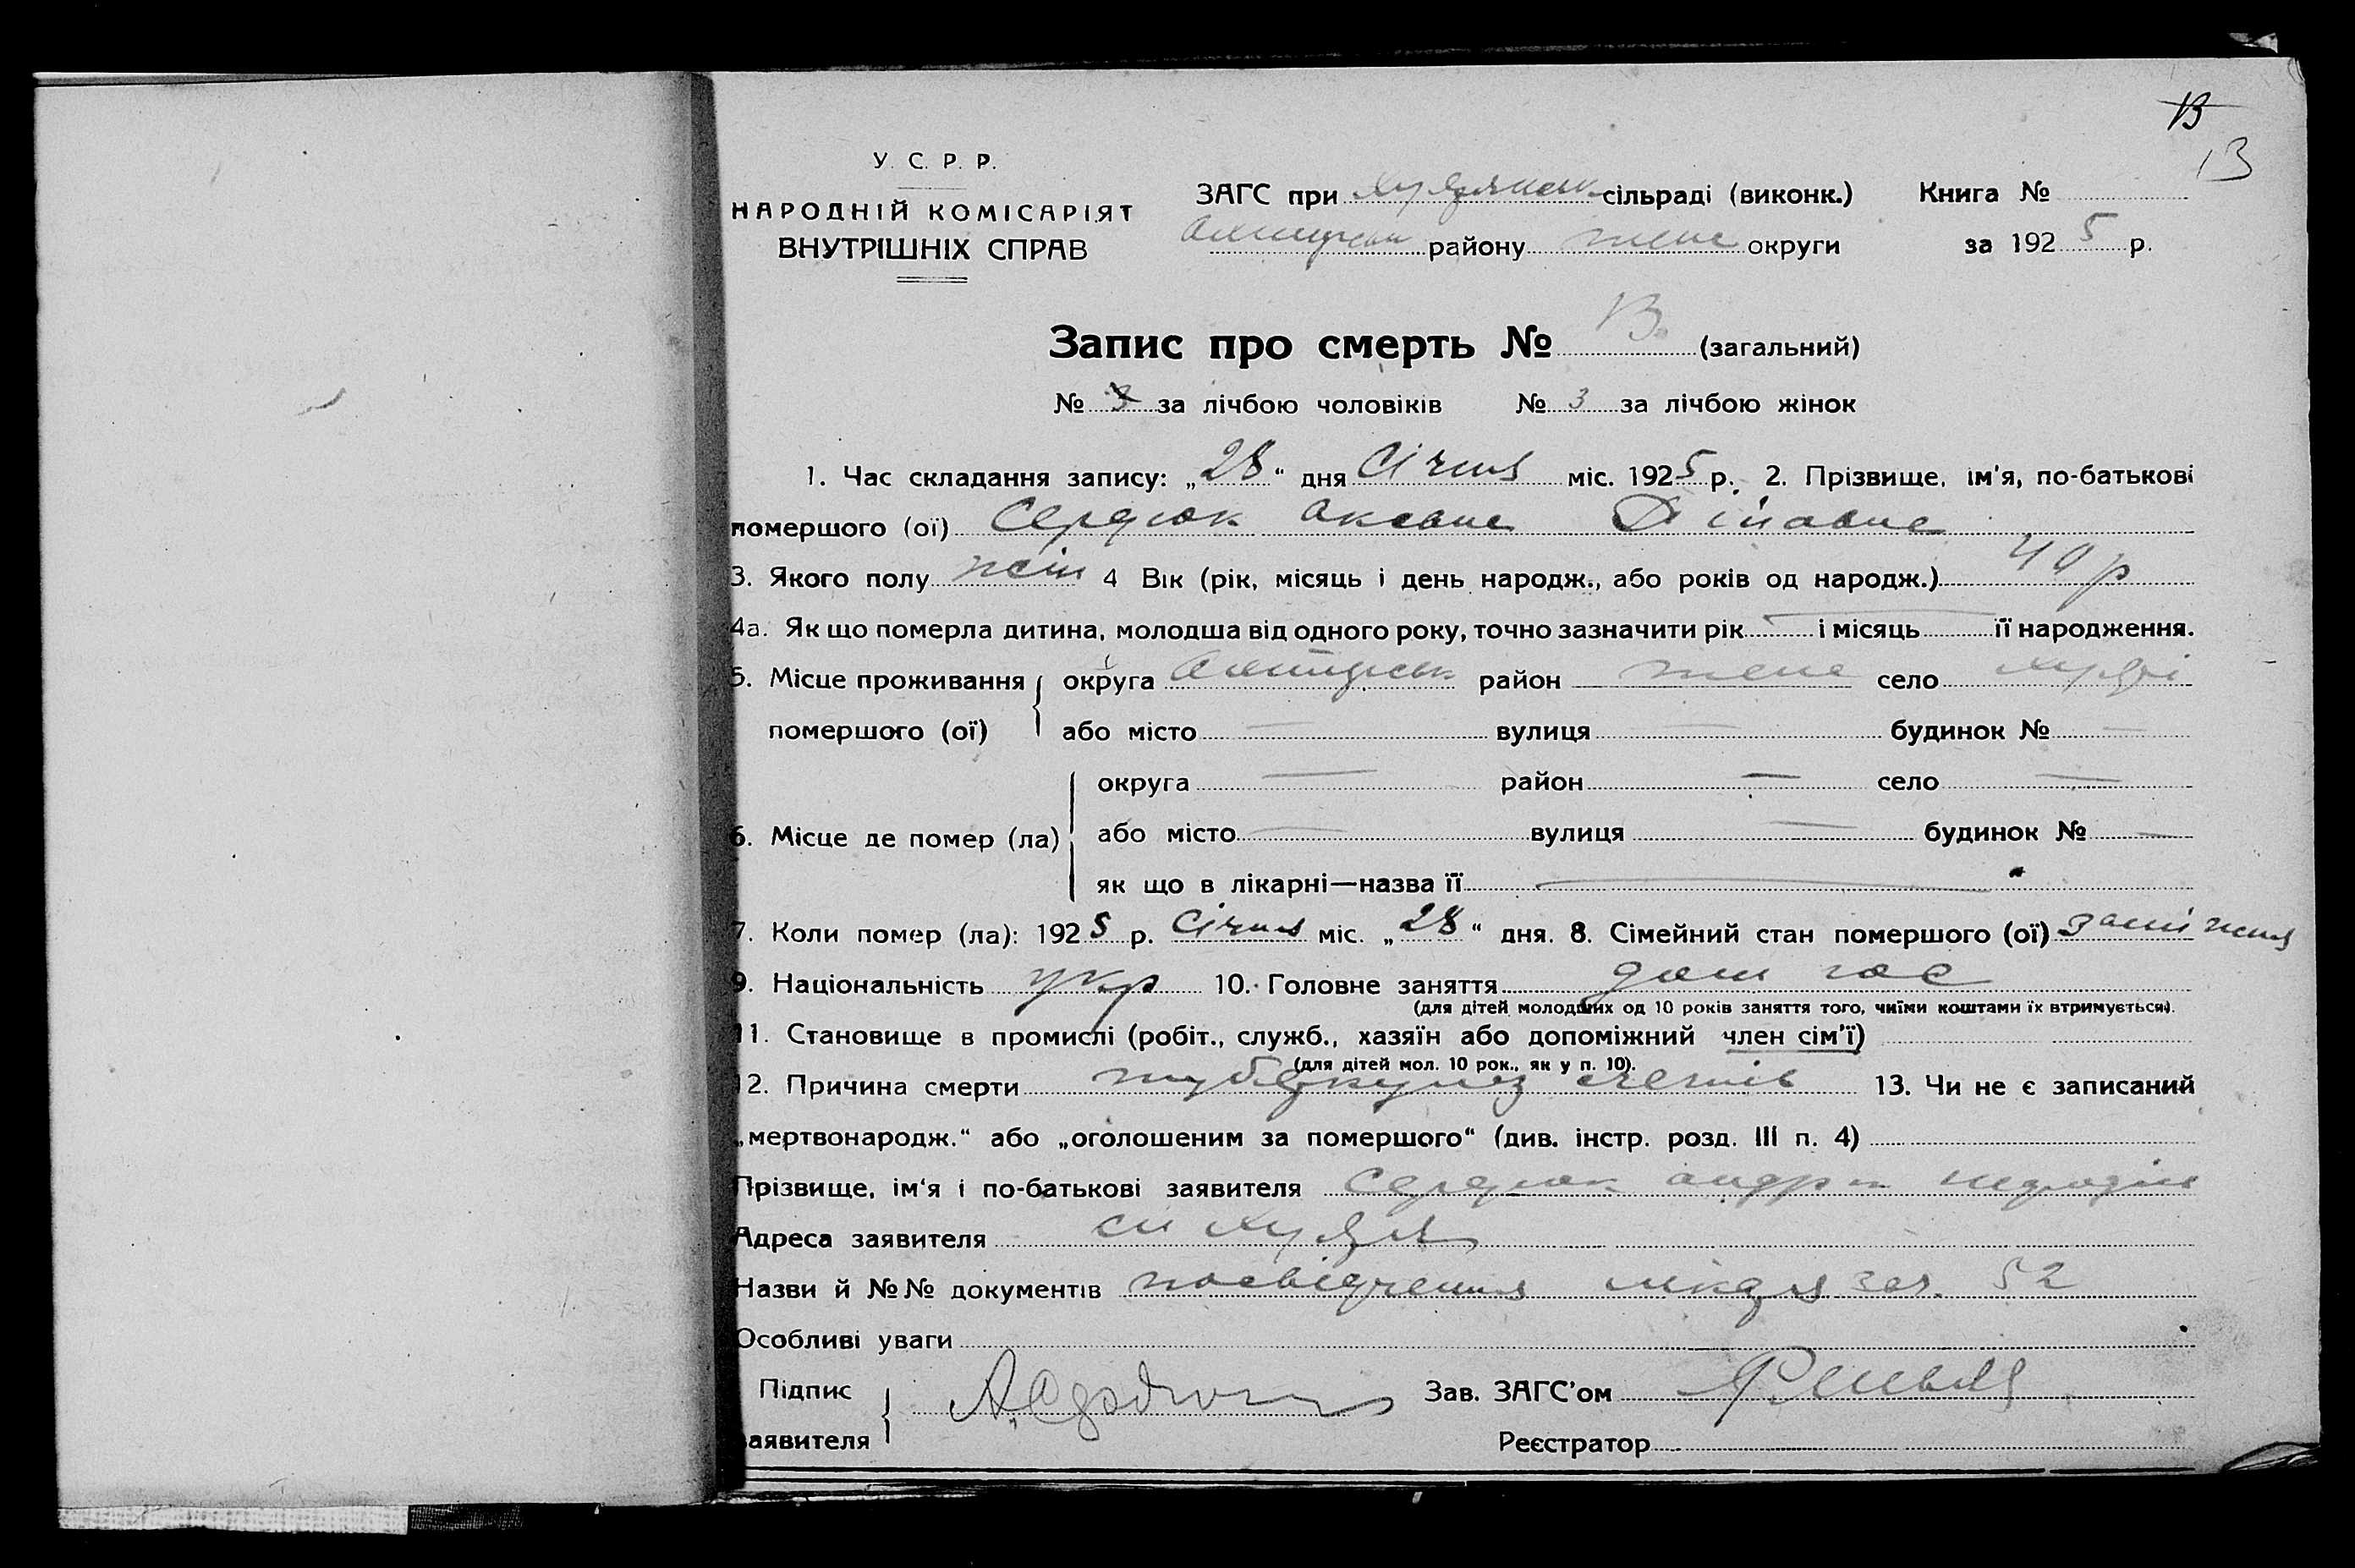 13
13
У. С. Р. Р.
НАРОДНІЙ КОМІСАРІЯТ
ВНУТРІШНІХ СПРАВ
ЗАГС при Худянськ сільраді (виконк.) Книга №
району округи за 1925 р.
Запис про смерть № 13. (загальний)
№ 3 за лічбою чоловіків № 3 за лічбою жінок
1. Час складання запису: „28“ дня Січня міс. 1925 р. 2. Прізвище, ім'я, по-батькові
помершого (ої) Сердюк Оксана
3. Якого полу жін 4 Вік (рік, місяць і день народж., або років од народж.) 40 р
4а. Як що померла дитина, молодша від одного року, точно зазначити рік і місяць її народження.
5. Місце проживання округа район село Худяки
помершого (ої) або місто — вулиця — будинок № —
округа — район — село —
6. Місце де помер (ла) або місто — вулиця — будинок № —
як що в лікарні—назва її —
7. Коли помер (ла): 1925 р. Січня міс. „28“ дня. 8. Сімейний стан помершого (ої) заміжня
9. Національність укр 10. Головне заняття дом гос
(для дітей молодших од 10 років заняття того, чиїми коштами їх втримується).
11. Становище в промислі (робіт., служб., хазяїн або допоміжний член сім'ї)
(для дітей мол. 10 рок., як у п. 10).
12. Причина смерти туберкульоз легенів 13. Чи не є записаний
„мертвонародж.“ або „оголошеним за помершого“ (див. інстр. розд. III п. 4)
Прізвище, ім'я і по-батькові заявителя Сердюк Андрій
Адреса заявителя с Худяки
Назви й №№ документів посвідчення лікаря за ч. 52
Особливі уваги
Підпис
заявителя
Зав. ЗАГС'ом
Реєстратор